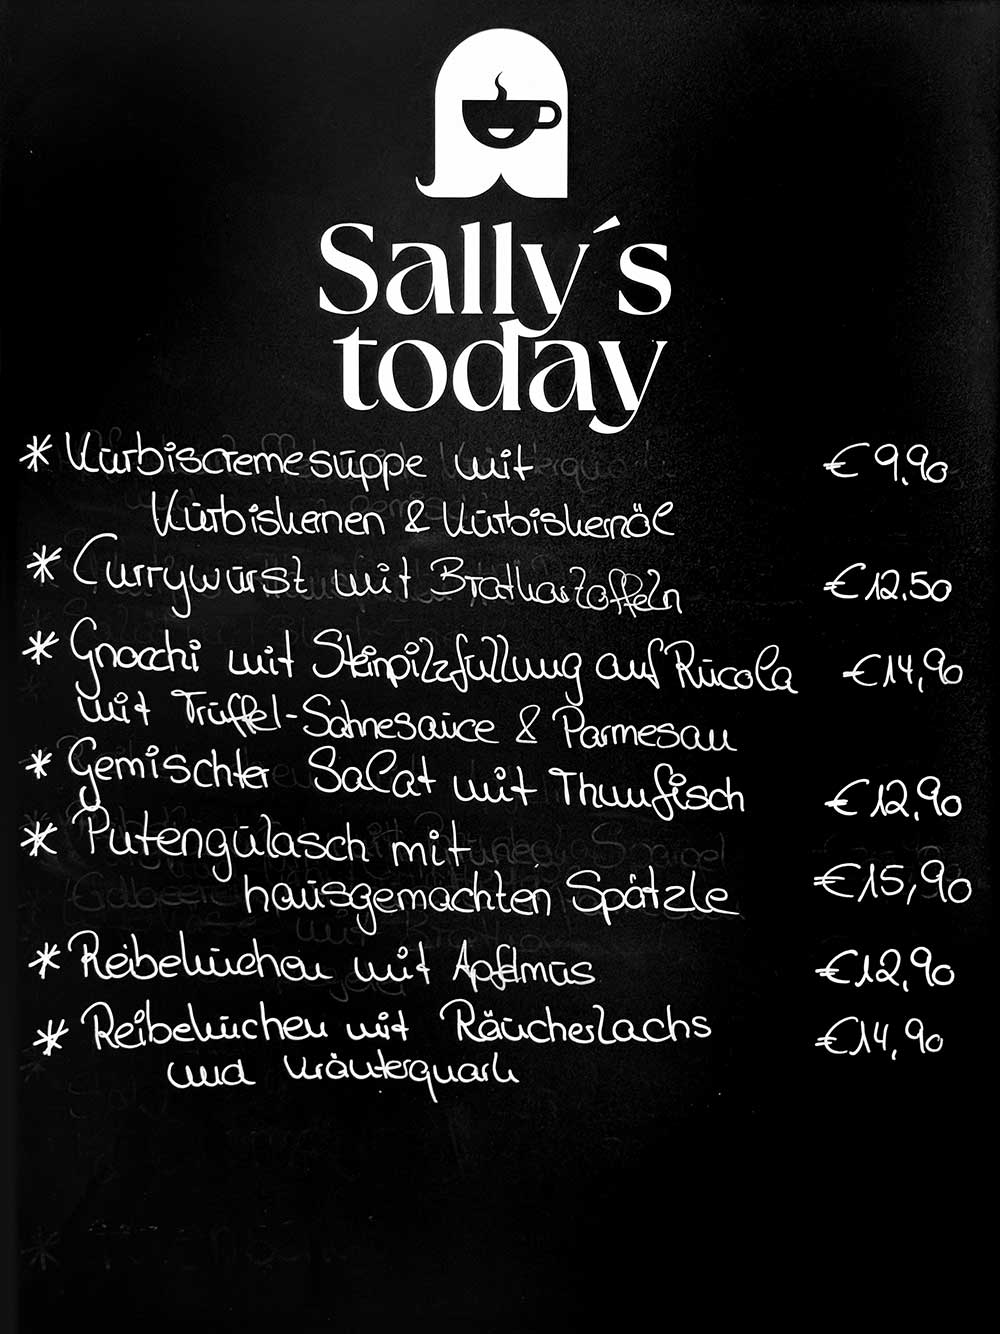 Sally´s
today
* Kürbiscremesuppe mit € 9,90
Kürbiskernen & Kürbiskernöl
* Currywurst mit Bratkartoffeln € 12.50
* Gnocchi mit Steinpilzfüllung auf Rucola € 14,90
mit Trüffel-Sahnesauce & Parmesan
* Gemischter Salat mit Thunfisch € 12,90
* Putengulasch mit
hausgemachten Spätzle € 15,90
* Reibekuchen mit Apfelmus € 12,90
* Reibekuchen mit Räucherlachs € 14,90
und Kräuterquark